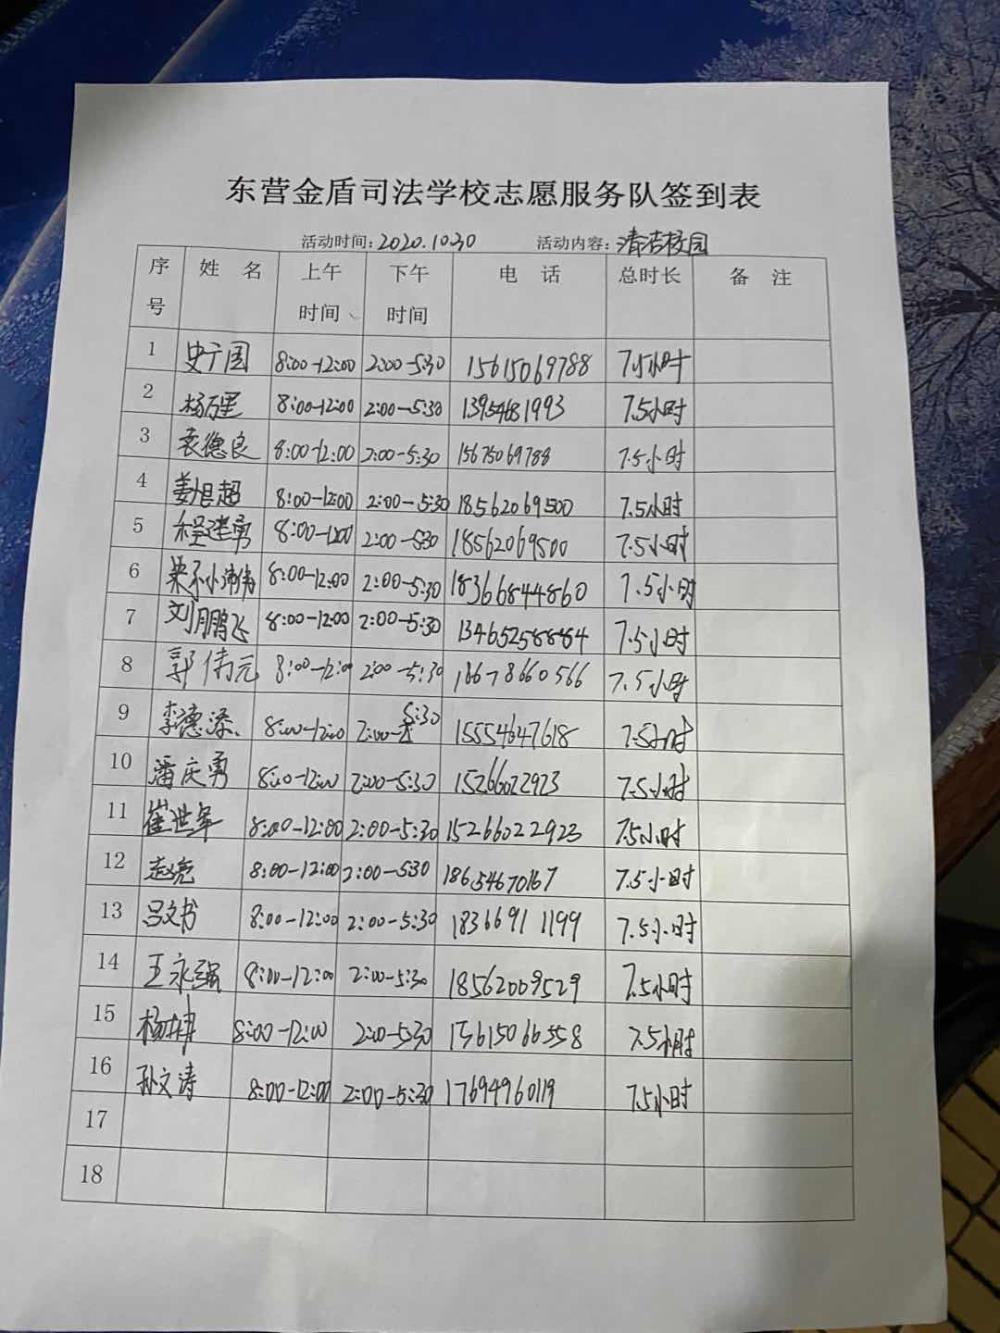 东营金盾司法学校志愿服务队签到表
活动时间：2020.10.30 活动内容：清洁校园
序号 姓名 上午时间 下午时间 电话 总时长 备注
1 史广国 8:00-12:00 2:00-5:30 15615069788 7.5小时
2 杨万里 8:00-12:00 2:00-5:30 13954681993 7.5小时
3 袁德良 8:00-12:00 2:00-5:30 15675069788 7.5小时
4 姜旭超 8:00-12:00 2:00-5:30 18562069500 7.5小时
5 程建勇 8:00-1200 2:00-530 18562069500 7.5小时
6 8:00-12:00 2:00-5:30 18366844860 7.5小时
7 刘鹏飞 8:00-12:00 2:00-5:30 13465258884 7.5小时
8 郭伟元 8:00-12:00 2:00-5:30 18678660566 7.5小时
9 李德添 8:00-12:00 2:00-5:30 15554647618 7.5小时
10 潘庆勇 8:00-12:00 2:00-5:30 15266022923 7.5小时
11 崔世军 8:00-12:00 2:00-5:30 15266022923 7.5小时
12 赵亮 8:00-12:00 2:00-530 18654670167 7.5小时
13 吕文书 8:00-12:00 2:00-5:30 18366911199 7.5小时
14 王永强 8:00-12:00 2:00-5:30 18562009529 7.5小时
15 杨坤 8:00-12:00 2:00-5:30 15615066558 7.5小时
16 孙文涛 8:00-12:00 2:00-5:30 17694960119 7.5小时
17
18